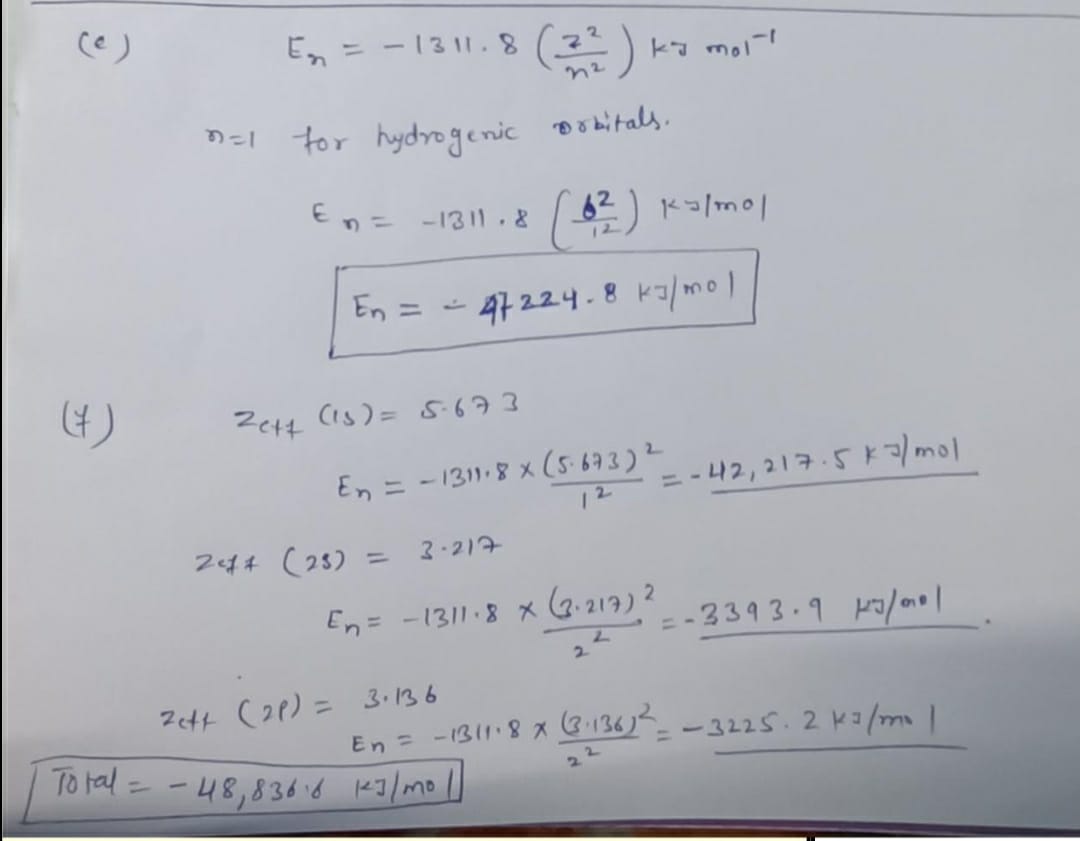 (e) En = -1311.8 (Z²/n²) kJ mol⁻¹
n=1 for hydrogenic orbitals.
En = -1311.8 (6²/1²) kJ/mol
En = - 47224.8 kJ/mol
(f) Zeff (1s) = 5.673
En = -1311.8 × (5.673)²/1² = -42,217.5 kJ/mol
Zeff (2s) = 3.217
En = -1311.8 × (3.217)²/2² = -3393.9 kJ/mol.
Zeff (2P) = 3.136
En = -1311.8 × (3.136)²/2² = -3225.2 kJ/mol
Total = -48,836.6 kJ/mol